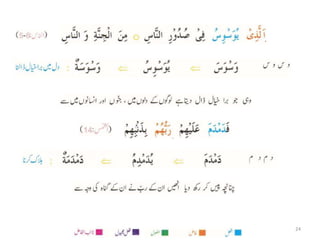 اَلَّذِىْ يُوَسْوِسُ فِىْ صُدُوْرِ النَّاسِ ○ مِنَ الْجِنَّةِ وَ النَّاسِ (الناس:5-6)
و س و س وَسْوَسَ ⇐ يُوَسْوِسُ ⇐ وَسْوَسَةٌ : دل میں برا خیال ڈالنا
وہی جو برا خیال ڈال دیتا ہے لوگوں کے دلوں میں - جنوں اور انسانوں میں سے
فَدَمْدَمَ عَلَيْهِمْ رَبُّهُمْ بِذَنْۢبِهِمْ (الشمس:14)
د م د م دَمْدَمَ ⇐ يُدَمْدِمُ ⇐ دَمْدَمَةٌ : ہلاک کرنا
چنانچہ پیس کر رکھ دیا انھیں ان کے رب نے ان کے گناہ کی وجہ سے
فعل فاعل مفعول فعل مجہول نائب الفاعل
24